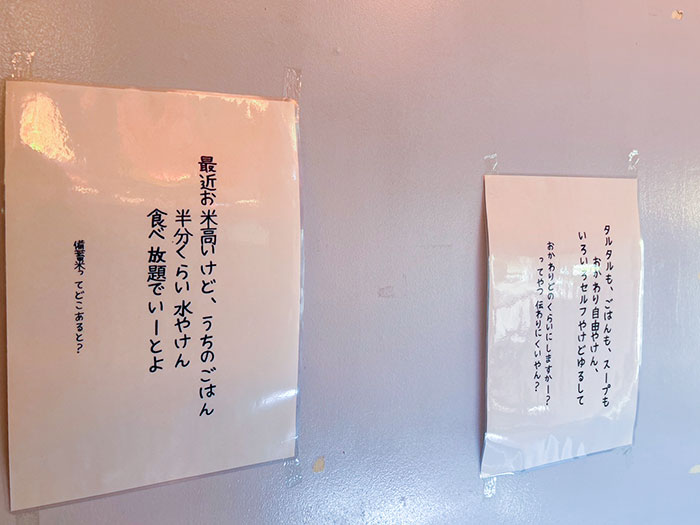 最近お米高いけど、うちのごはん
半分くらい水やけん
食べ放題でいーとよ
備蓄米ってどこあると？
タルタルも、ごはんも、スープも
おかわり自由やけん、
いろいろセルフやけどゆるして
おかわりどのくらいにしますか〜？
ってやつ伝わりにくいやん？